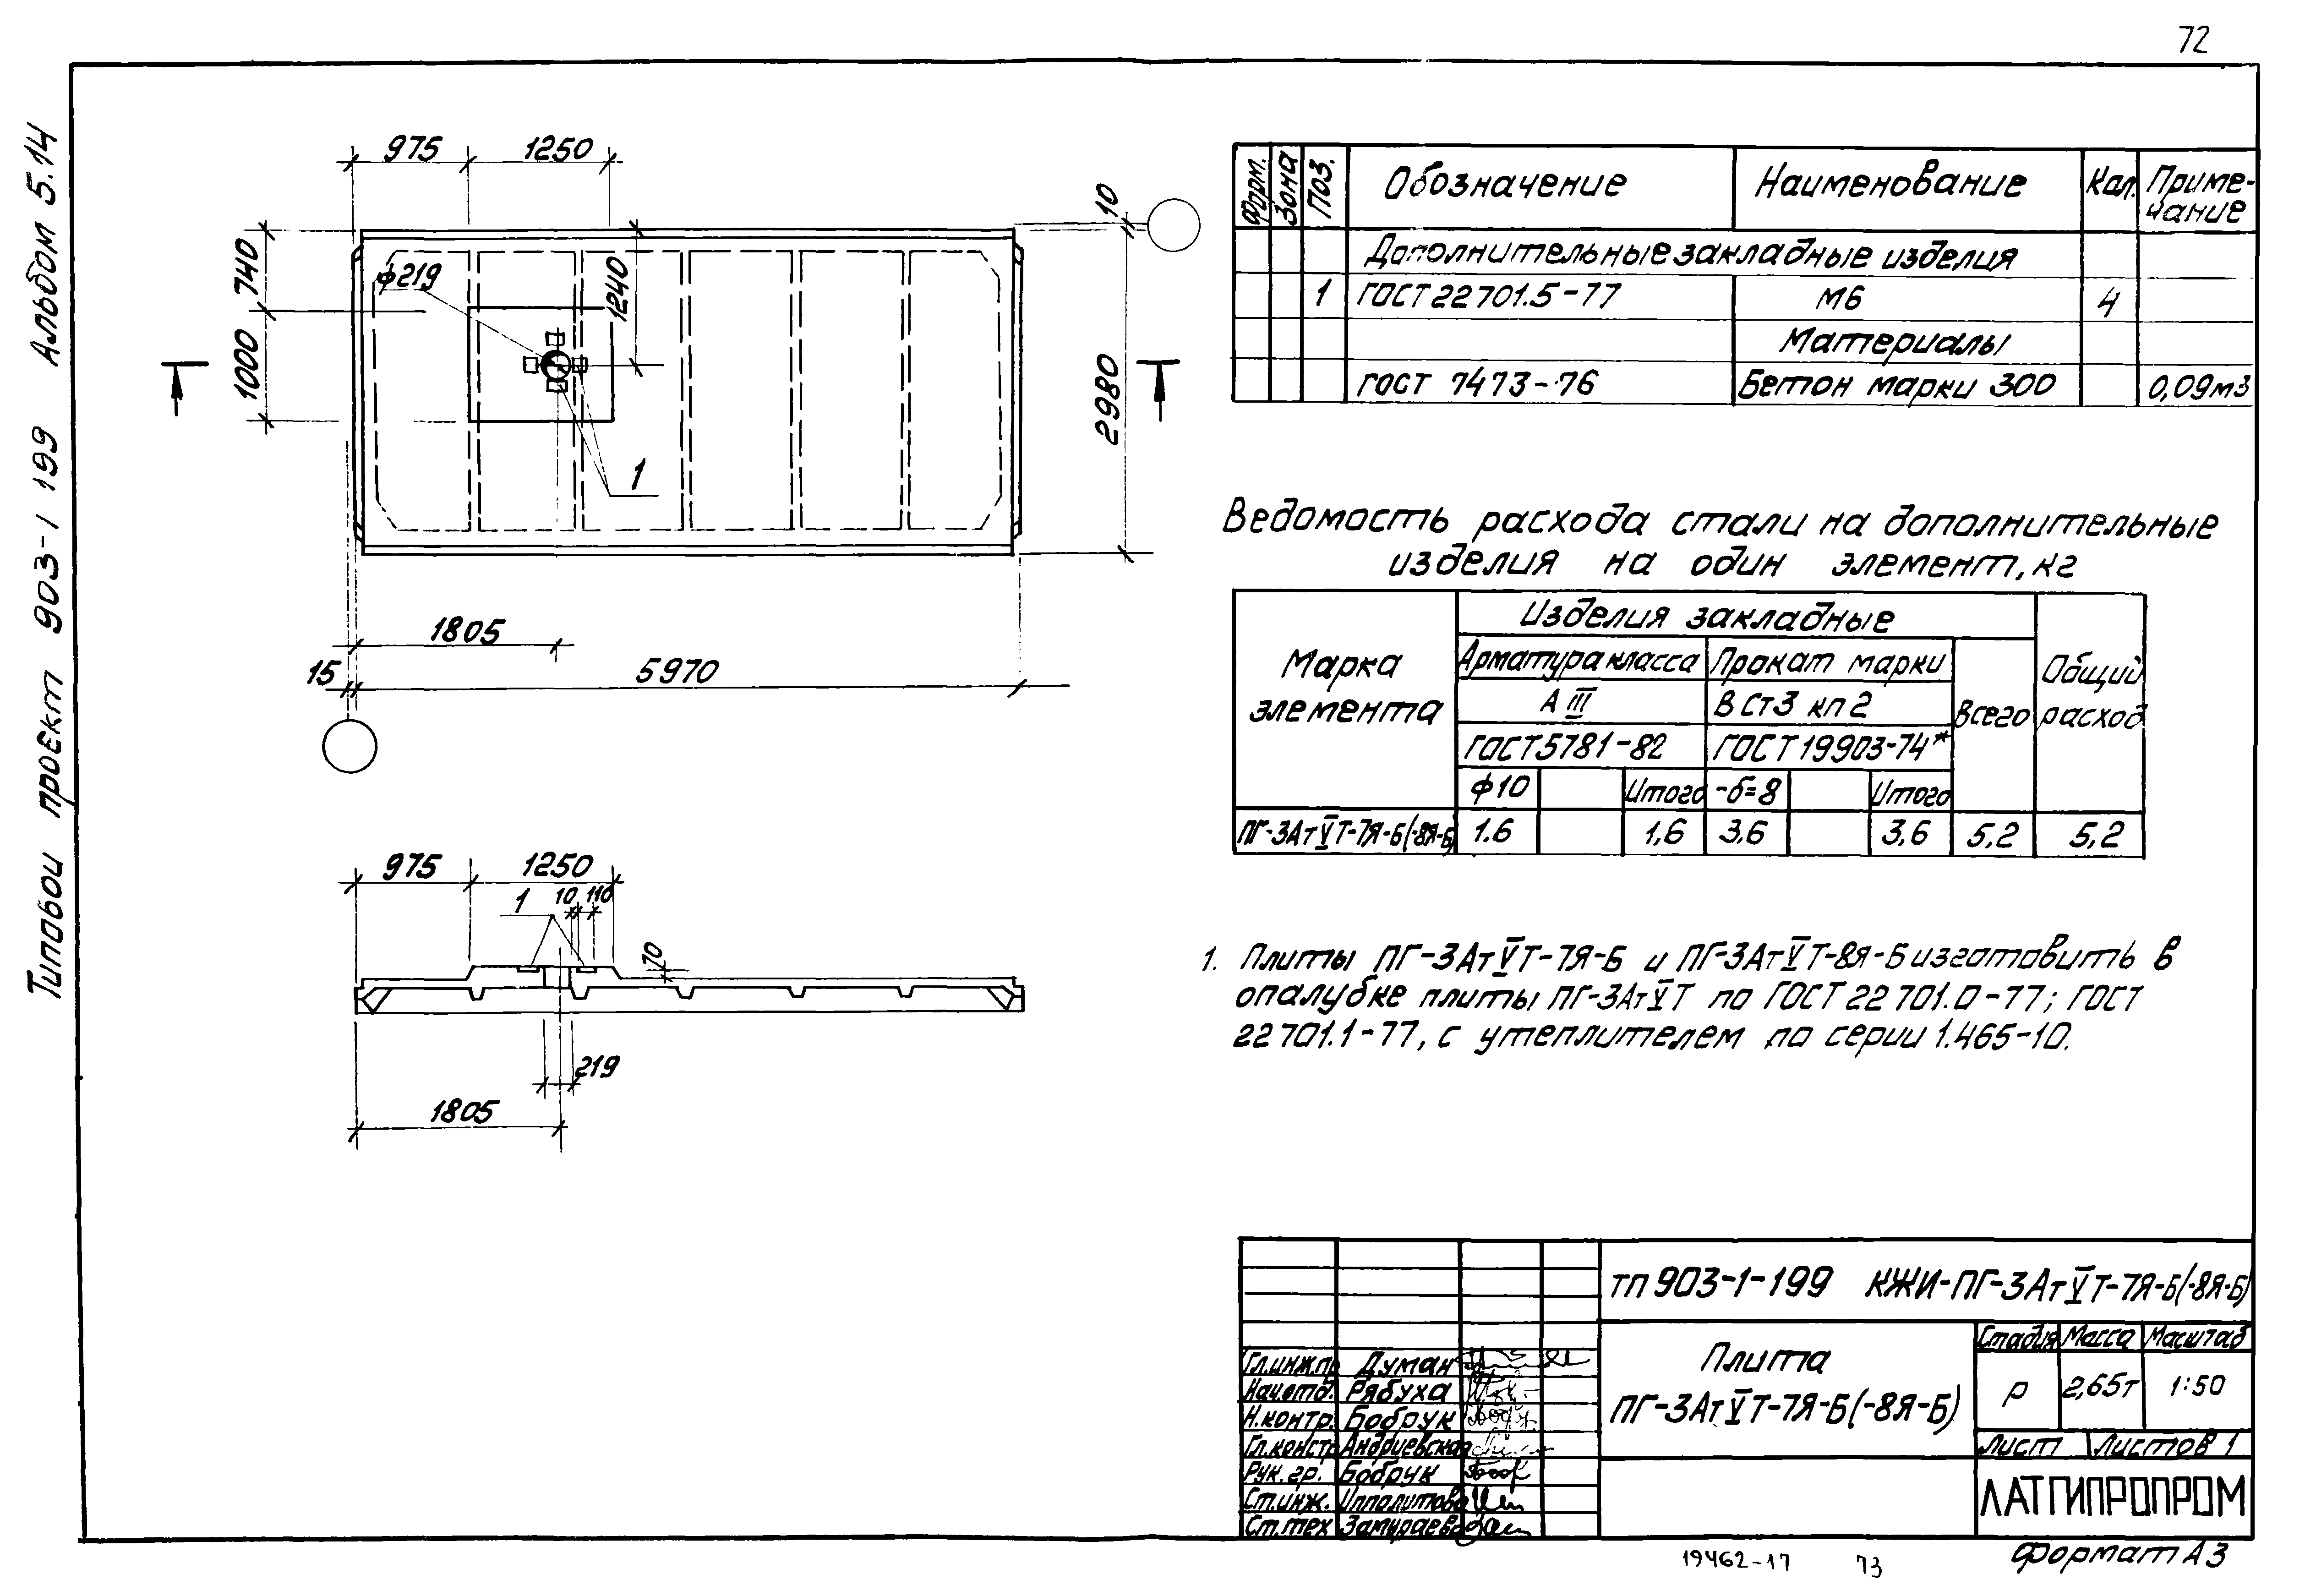 72
Типовой проект 903-1 199 Альбом 5.14
975
1250
10
740
ф219
1240
1000
2980
1
1805
15
5970
975
1250
1
10
110
70
219
1805
Форм.
Зона
Поз.
Обозначение
Наименование
Кол.
Приме-
чание
Дополнительные закладные изделия
1 ГОСТ 22701.5-77 М6 4
Материалы
ГОСТ 7473-76 Бетон марки 300 0,09м3
Ведомость расхода стали на дополнительные
изделия на один элемент, кг
Марка
элемента
Изделия закладные
Арматура класса
Прокат марки
А III
В Ст3 кп 2
ГОСТ 5781-82
ГОСТ 19903-74*
ф10
Итого
-б=8
Итого
Всего
Общий
расход
ПГ-3АтVТ-7Я-Б(-8Я-Б) 1.6 1,6 3,6 3,6 5,2 5,2
1. Плиты ПГ-3АтVТ-7Я-Б и ПГ-3АтVТ-8Я-Б изготовить в
опалубке плиты ПГ-3АтVТ по ГОСТ 22701.0-77; ГОСТ
22701.1-77, с утеплителем по серии 1.465-10.
тп 903-1-199 КЖИ-ПГ-3АтVТ-7Я-Б(-8Я-Б)
Плита
ПГ-3АтVТ-7Я-Б(-8Я-Б)
Стадия Масса Масштаб
Р 2,65т 1:50
Лист Листов 1
ЛАТГИПРОПРОМ
Гл.инж.пр Думан
Нач.отд. Рябуха
Н.контр. Бобрук
Гл.констр Андриевская
Рук.гр. Бобрук
Ст.инж. Ипполитова
Ст.тех Замураева
19462-17 73
Формат А3